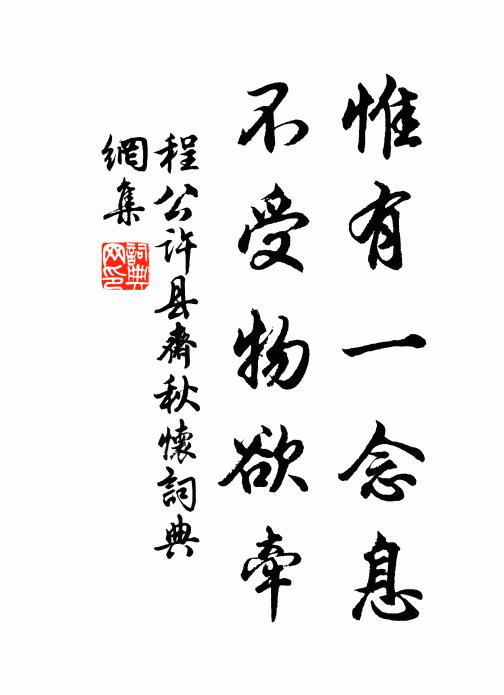 惟有一念息
不受物欲牵
程公许县斋秋懷詞典
網集
詞典网印